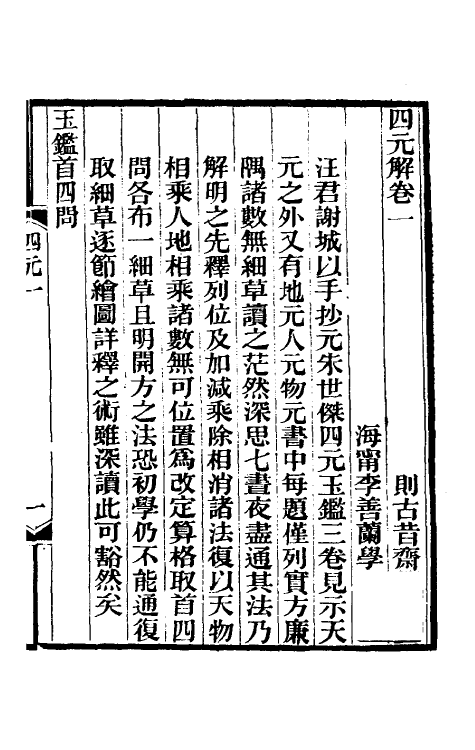 四元解卷一
則古昔齋
海甯李善蘭學
汪君謝城以手抄元朱世傑四元玉鑑三卷見示天
元之外又有地元人元物元書中每題僅列實方廉
隅諸數無細草讀之茫然深思七晝夜盡通其法乃
解明之先釋列位及加減乘除相消諸法復以天物
相乘人地相乘諸數無可位置爲改定算格取首四
問各布一細草且明開方之法恐初學仍不能通復
取細草逐節繪圖詳釋之術雖深讀此可豁然矣
玉鑑首四問
四元一
一